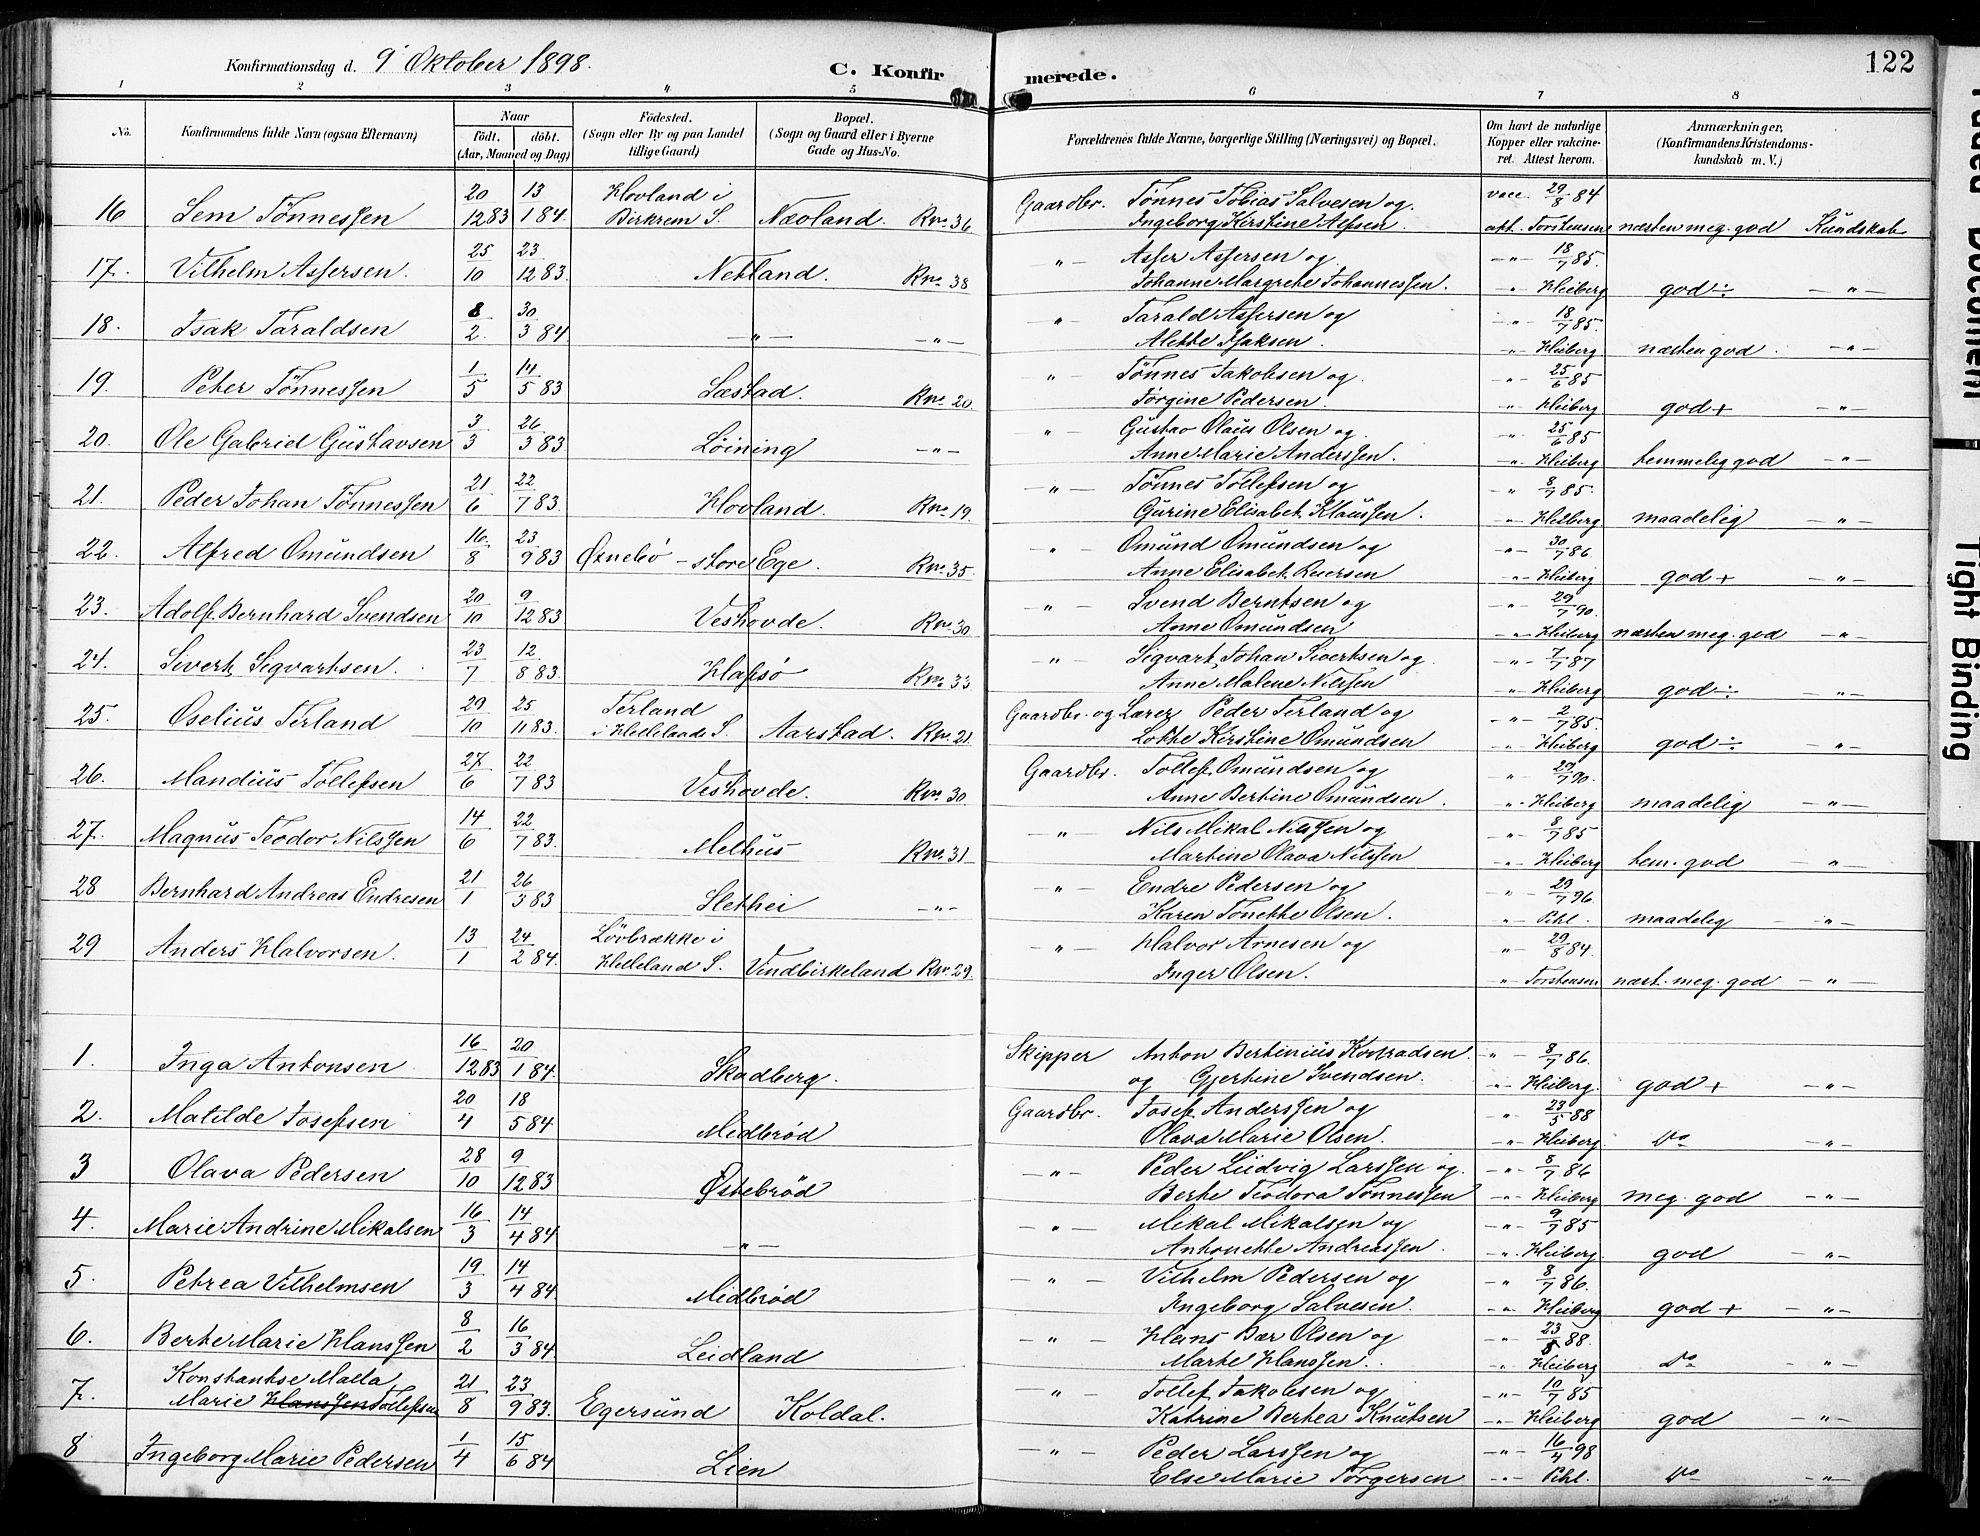 122
Konfirmationsdag d. 9' Oktober 1898.
C. Konfir merede.
1 2 3 4 5 6 7 8
No.
Konfirmandens fulde Navn (ogsaa Efternavn)
Naar
födt. döbt.
(Aar, Maaned og Dag)
Födested.
(Sogn eller By og paa Landet
tillige Gaard)
Bopæl.
(Sogn og Gaard eller i Byerne
Gade og Hus-No.
Forældrenes fulde Navne, borgerlige Stilling (Næringsvei) og Bopæl.
Om havt de naturlige
Kopper eller vakcine-
ret. Attest herom.
Anmærkninger,
(Konfirmandens Kristendoms-
kundskab m. V.)
16 Sem Tönnesen 20/12 83 13/1 84. Hovland i Birkrem S. Næoland. Rno. 36 Gaardbr. Tönnes Tobias Salvesen og vacc. 29/8 84
Ingeborg Kirstine Alfsen. att. Torstensen næsten meg. god Kundskab
17. Vilhelm Assersen. 25/10 23/12 83. Netland. Rno. 38 -"- Asser Assersen og -"- 18/7 85.
Johanne Margrete Johannessen. -"- Heiberg god ÷ -"-
18. Isak Taraldsen 8/2 30/3 84 -"- -"- " Tarald Assersen og -"- 18/7 85.
Alette Isaksen. -"- Heiberg næsten god. -"-
19. Peter Tönnessen 1/5 14/5 83 Sæstad. Rno. 20. " Tönnes Jakobsen og -"- 25/6 85
Törgine Pedersen. -"- Heiberg god + -"-
20. Ole Gabriel Gustavsen 3/3 26/3 83 Löining -"- "- Gustav Olaus Olsen og -"- 25/6 85
Anne Marie Anderssen. -"- Heiberg temmelig god -"-
21. Peder Johan Tönnessen 21/6 22/7 83. Hovland. Rno. 19. -"- Tönnes Tollefsen og -" 8/7 85.
Gurine Elisabet Klaussen. -"- Heiberg maadelig -"-
22. Alfred Omundsen 16/8 23/9 83 Øgnebö - store Ege. Rno. 35. " Omund Omundsen og -"- 30/7 86
Anne Elisabet Reiersen -"- Heiberg god + -"-
23. Adolf Bernhard Svendsen 20/10 9/12 83 Veshovde. Rno. 30 -"- Svend Berntsen og -"- 29/7 90.
Anne Omundsen -"- Heiberg næsten meg. god -"-
24. Sivert Sigvartsen. 23/7 12/8 83. Hafsö Rno. 33 -"- Sigvart Johan Sivertsen og -"- 7/7 87
Anne Malene Nilssen -"- Heiberg god ÷ -"-
25. Oselius Terland 29/10 25/11 83. Terland i Hellelands S. Aarstad. Rno. 21. Gaardbr. og Lærer Peder Terland og -"- 2/7 85.
Lotte Kirstine Omundsen -"- Heiberg god ÷ -"-
26. Mandius Tollefsen 27/6 22/7 83 Veshovde. Rno. 30 Gaardbr. Tollef Omundsen og " 29/7 90.
Anne Bertine Omundsen. "- Heiberg maadelig -"-
27. Magnus Teodor Nilssen 14/6 22/7 83. Melhus Rno. 31 -"- Nils Mikal Nilssen og -"- 8/7 85
Martine Olava Nilssen -"- Heiberg tem. god -"-
28 Bernhard Andreas Endresen 21/1 26/3 83 Slethei -"- -"- Endre Pedersen og -"- 29/7 96
Karen Tonette Olsen. -"- Pihl. maadelig -"-
29 Anders Halvorsen. 13/1 24/2 84. Lövbrække i Helleland S. Vindbirkeland Rno. 29. " Halvor Arnesen og -"- 29/8 84.
Inger Olsen. -"- Torstensen næst. meg. god -"-
1. Inga Antonsen 16/12 83 20/1 84. Skadberg. Skipper Anton Bertinius Konradsen "- 8/7 86.
og Gjertine Svendsen. -"- Heiberg. god + -"-
2. Matilde Josefsen 20/4 18/5 84 Midbröd Gaardbr. Josef Anderssen og -"- 23/5 88
Olava Marie Olsen. -"- Heiberg. Do -"-
3 Olava Pedersen 28/10 9/12 83 Østebröd -"- Peder Ludvig Larssen og. -"- 8/7 86
Berte Teodora Tönnessen -"- Heiberg meg. god -"-
4. Marie Andrine Mikalsen 16/3 14/4 84 -"- -"- Mikal Mikalsen og -"- 9/7 85
Antonette Andreassen. -"- Heiberg. god -"-
5. Petrea Vilhelmsen 19/3 14/4 84 Midbröd -"- Vilhelm Pedersen og -"- 8/7 86.
Ingeborg Salvesen. -"- Heiberg god + -"-
6. Berte Marie Hanssen 8/2 16/3 84 Leidland -"- Hans Bær Olsen og -"- 23/5 88.
Marte Hanssen. -"- Heiberg Do -"-
7. Konstantse Malla
Marie Hanssen Tollefsen 21/8 23/9 83. Egersund Koldal. -"- Tollef Jakobsen og -"- 10/7 85
Katrine Bertea Knutsen -"- Heiberg god -"-
8 Ingeborg Marie Pedersen 1/4 15/6 84 Lien -"- Peder Larssen og -"- 16/4 98
Else Marie Törgersen -"- Pihl. Do -"-
Faded Document
Tight Binding